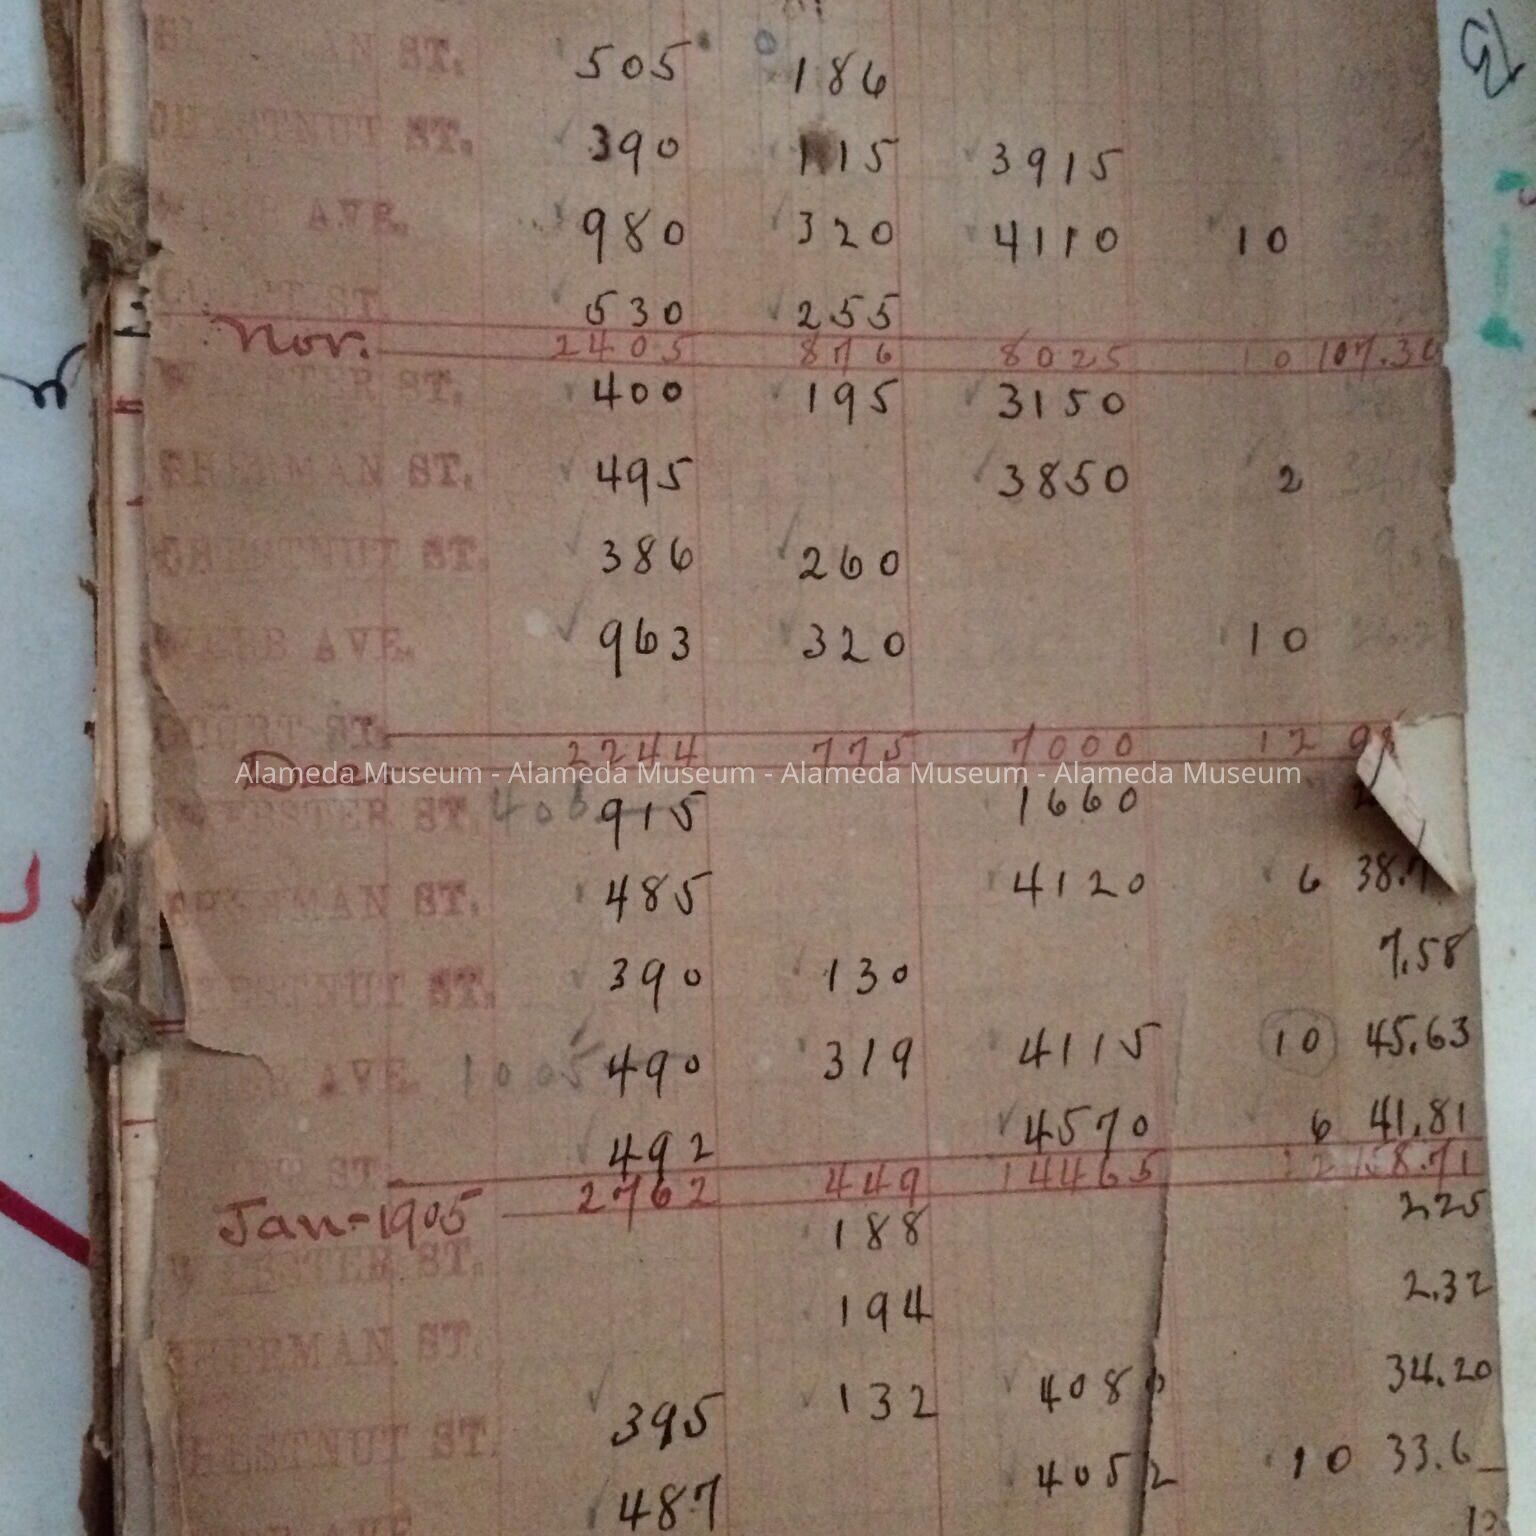 ST. 505 186
CHESTNUT ST. 390 115 3915
AVE. 980 320 4110 10
ST. 530 255
Nov. 2405 876 8025 10 107.30
WEBSTER ST. 400 195 3150
SHERMAN ST. 495 3850 2
CHESTNUT ST. 386 260
AVE. 963 320 10
COURT ST.
Dec. 2244 775 7000 12
Alameda Museum - Alameda Museum - Alameda Museum - Alameda Museum
WEBSTER ST. 915 1660
SHERMAN ST. 485 4120 6 38.
CHESTNUT ST. 390 130 7.58
AVE. 1005 490 319 4115 10 45.63
ST. 492 4570 6 41.81
2762 449 14465 22 158.71
Jan-1905
WEBSTER ST. 188 2.25
SHERMAN ST. 194 2.32
CHESTNUT ST. 395 132 4080 34.20
AVE. 487 4052 10 33.6